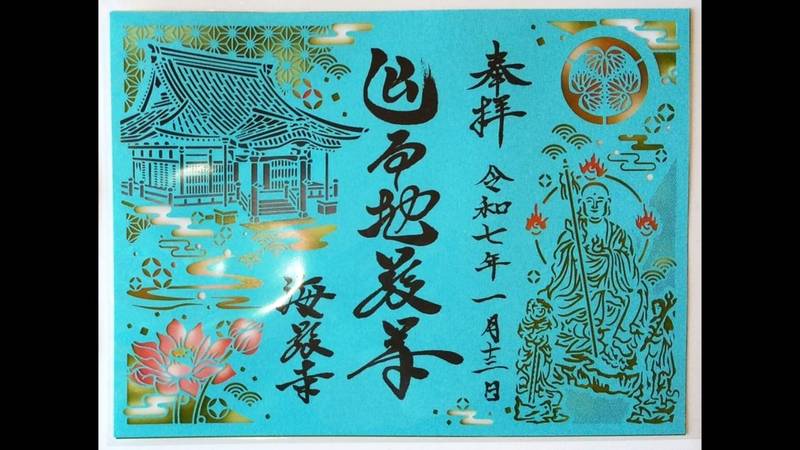 奉拝
令和七年一月十三日
延命地蔵尊
海蔵寺